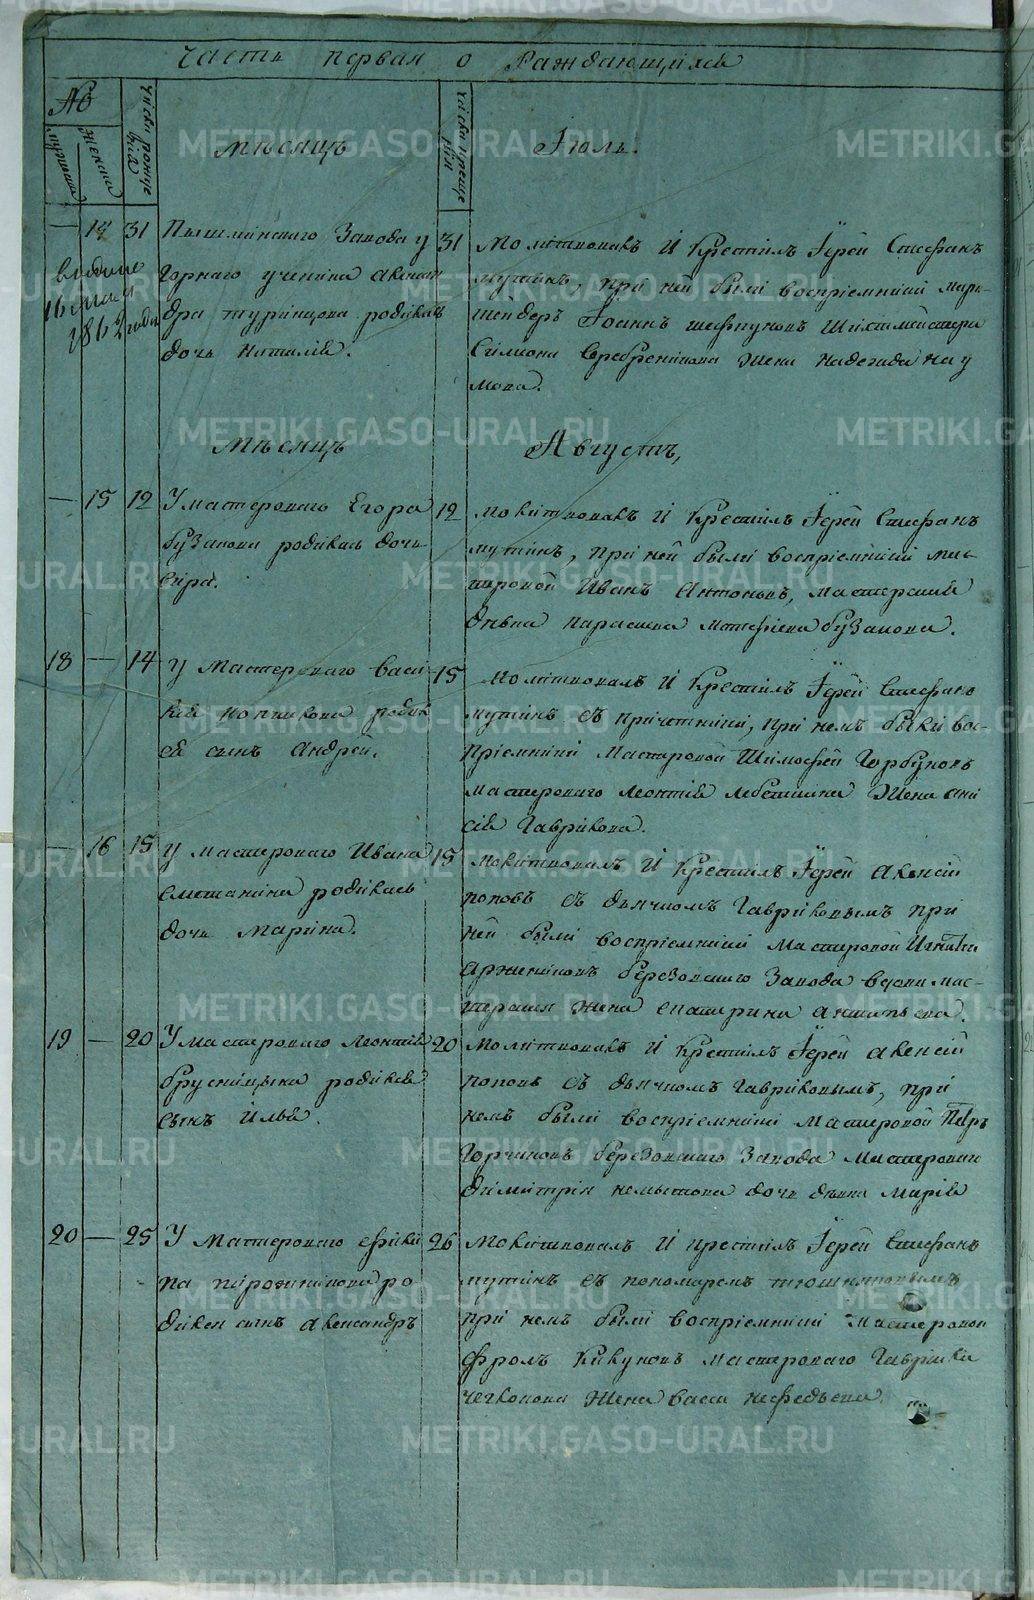 Часть первая о Раждающихся
№
мужеска
женска
числы рожде
нія
Мѣсяцъ
числы креще
нія
Іюль.
— 14 31 Пышминскаго Завода у
горнаго ученика Алексан
дра турынцова родилась
дочь Наталія.
16 мая
186 года
31 Молитвовалъ И Крестилъ Іерей Стефанъ
мутинъ, при ней были воспріемники марк
шендеръ Іоаннъ Шихтмейстера
Симиона Серебреникова Жена Надежда Нау
мова.
Мѣсяцъ Августъ,
— 15 12 У мастероваго Егора
бузанова родилась дочь
12 Молитвовалъ И Крестилъ Іерей Стефанъ
мутинъ, при ней были воспріемники мас-
теровой Иванъ Антоновъ, мастерская
дѣвка Парасковья Матфіева бузанова.
18 — 14 у мастероваго Васи
лія родил
ся сынъ Андрей.
15 Молитвовалъ И Крестилъ Іерей Стефанъ
мутинъ съ причетники, при немъ были вос-
пріемники Мастеровой Тимофей Горбуновъ
мастероваго леонтія Жена ани
сія Гаврикова.
— 16 15 у мастероваго Ивана
сметанина родилась
дочь Марина.
15 Молитвовалъ И Крестилъ Іерей Алексій
поповъ съ дьячкомъ Гавриковымъ при
ней были воспріемники Мастеровой Игнатій
березовскаго Завода вдова мас-
терская жена екатерина
19 — 20 У мастероваго леонтія
брусницына родился
сынъ Илья.
20 Молитвовалъ И Крестилъ Іерей алексій
поповъ съ дьячкомъ гавриковымъ, при
немъ были воспріемники Мастеровой Петръ
березовскаго Завода Мастероваго
димитрія дочь дѣвка Марія
20 — 25 У Мастероваго Фили
па пирожникова ро
дился сынъ александръ
26 Молитвовалъ И крестилъ Іерей Стефанъ
мутинъ съ пономаремъ
при немъ были воспріемники Мастеровой
Фролъ Мастероваго Гаврила
Жена васса нефедьева.
METRIKI.GASO-URAL.RU